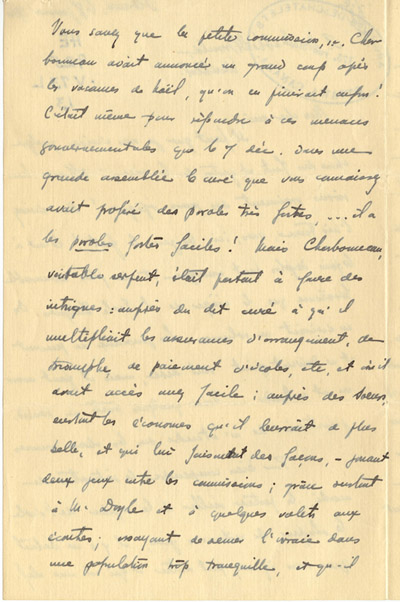 Vous savez que les petites commissions, M. Char
bonneau avait annoncé un grand coup après
les vacances de Noël, qu'on en finirait enfin!
C'était même pour répondre à ces menaces
gouvernementales que le 7 déc. dans une
grande assemblée le curé que vous connaissez
avait proféré des paroles très fortes, ... il a
les paroles fortes faciles! Mais Charbonneau,
véritable serpent, était partout à faire des
intrigues: auprès du dit curé à qui il
multipliait les assurances d'arrangement, de
triomphe, de paiement d'écoles, etc, et où il
avait accès assez facile; auprès des Soeurs,
surtout les économes qu'il leurrait de plus
belle, et qui lui faisaient des façons, - jouant
deux jeux entre les commissions; grâce surtout
à M. Doyle et à quelques valets aux
écoutes; essayant de semer l'ivraie dans
une population trop tranquille, et qu'il